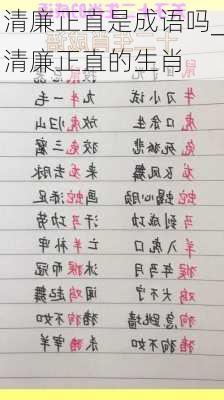 清廉正直是成语吗_
清廉正直的生肖
牛刀小试 九牛一毛
虎口余生 放虎归山
兔死狐悲 狡兔三窟
龙飞凤舞 来龙去脉
蛇蝎心肠 画蛇添足
马到成功 汗马功劳
羊入虎口 亡羊补牢
猴年马月 沐猴而冠
鸡犬不宁 闻鸡起舞
狗急跳墙 猪狗不如
猪狗不如